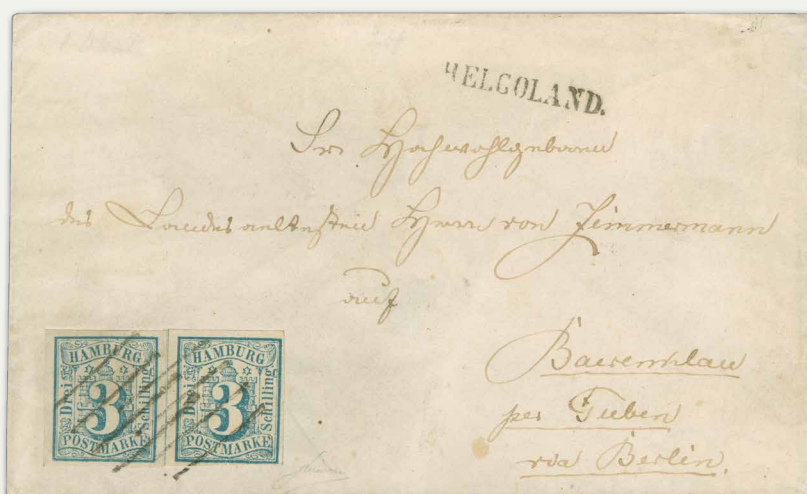 HELGOLAND.
Sr. Hochwohlgeboren
des Landesaeltesten Herrn von Zimmermann
auf
per Guben
via Berlin.
HAMBURG
Drei
3
Schilling
POSTMARKE
HAMBURG
Drei
3
Schilling
POSTMARKE